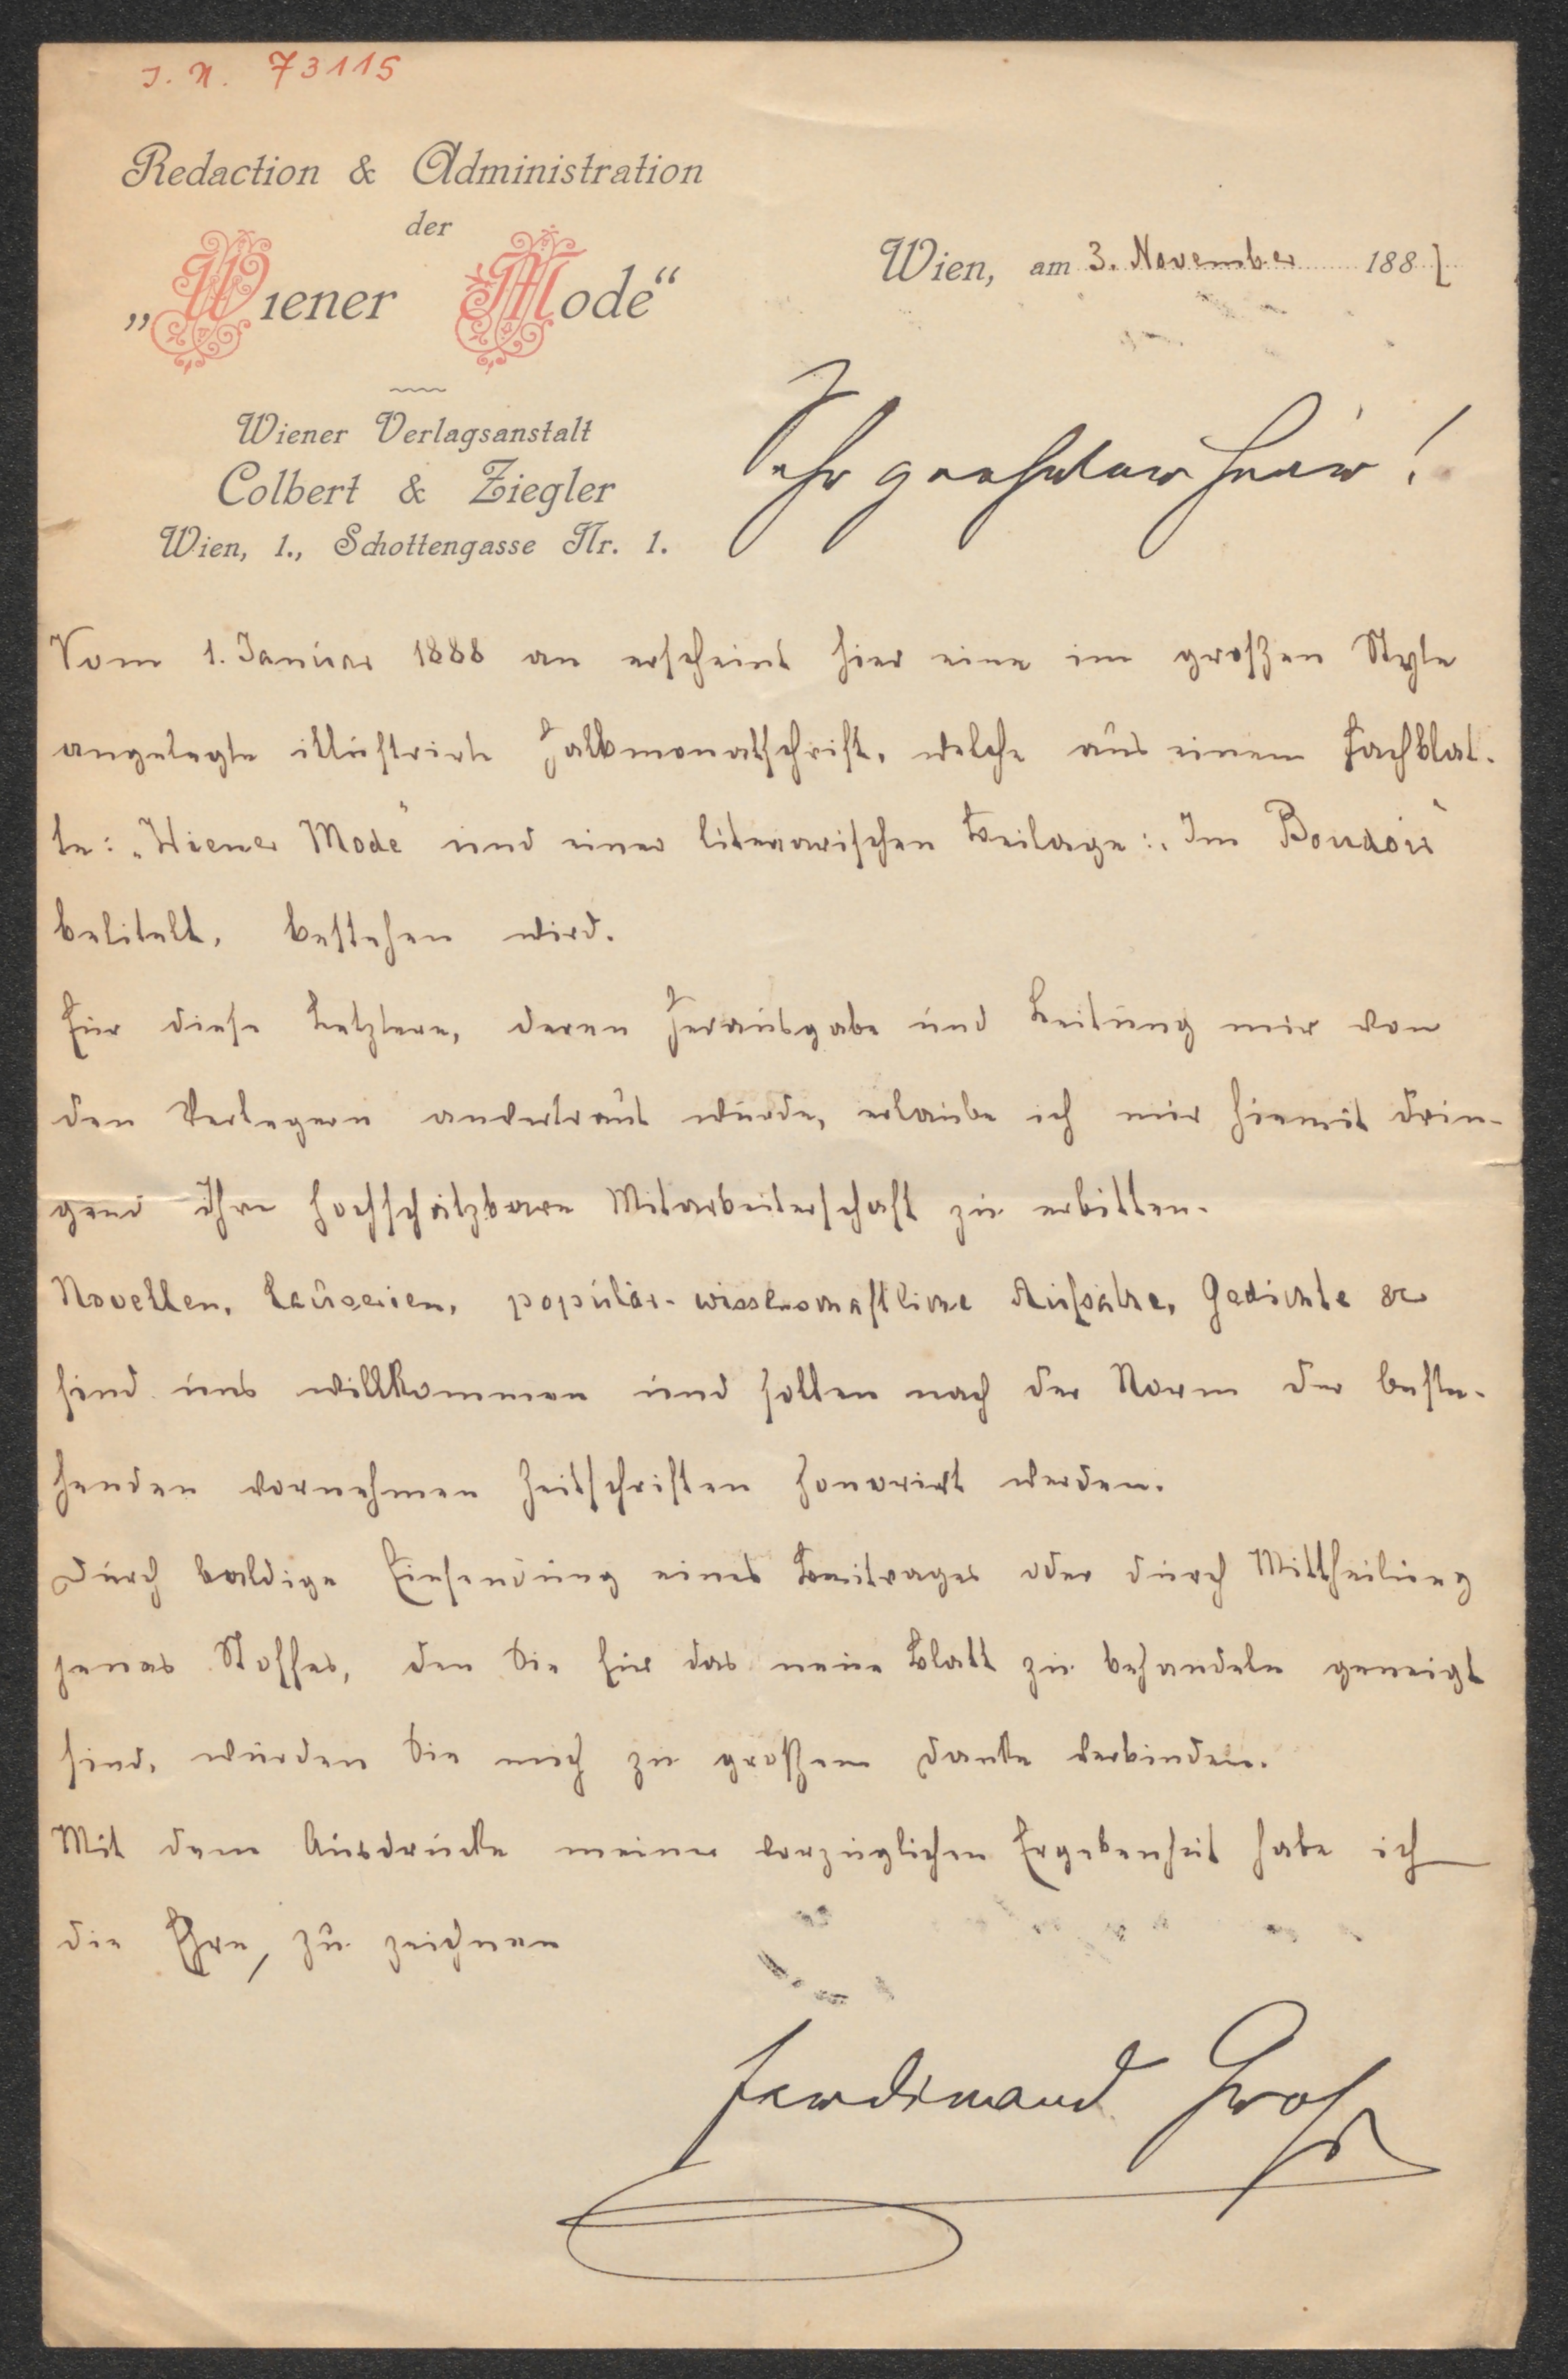 J. N. 73115
Redaction & Administration
der
„Wiener Mode“
Wien, am 3. November 1887
Wiener Verlagsanstalt
Colbert & Ziegler
Wien, 1., Schottengasse Nr. 1.
Sehr geehrter Herr!
Vom 1. Januar 1888 an erscheint hier eine im großen Style
angelegte illustrirte Halbmonatschrift, welche aus einem Fachblat-
te: „Wiener Mode“ und einer literarischen Beilage: „Im Boudoir“
betitelt, bestehen wird.
Für diese Letztere, deren Herausgabe und Leitung mir von
den Verlegern anvertraut wurde, erlaube ich mir hiemit drin-
gend Ihre hochschätzbare Mitarbeiterschaft zu erbitten.
Novellen, Causerien, populär-wissenschaftliche Aufsätze, Gedichte &c
sind uns willkommen und sollen nach der Norm der beste-
henden vornehmen Zeitschriften honorirt werden.
Durch baldige Einsendung eines Beitrages oder durch Mittheilung
jenes Stoffes, den Sie für das neue Blatt zu behandeln geneigt
sind, würden Sie mich zu großem Danke verbinden.
Mit dem Ausdrucke meiner vorzüglichen Ergebenheit habe ich
die Ehre, zu zeichnen
Ferdinand Groß